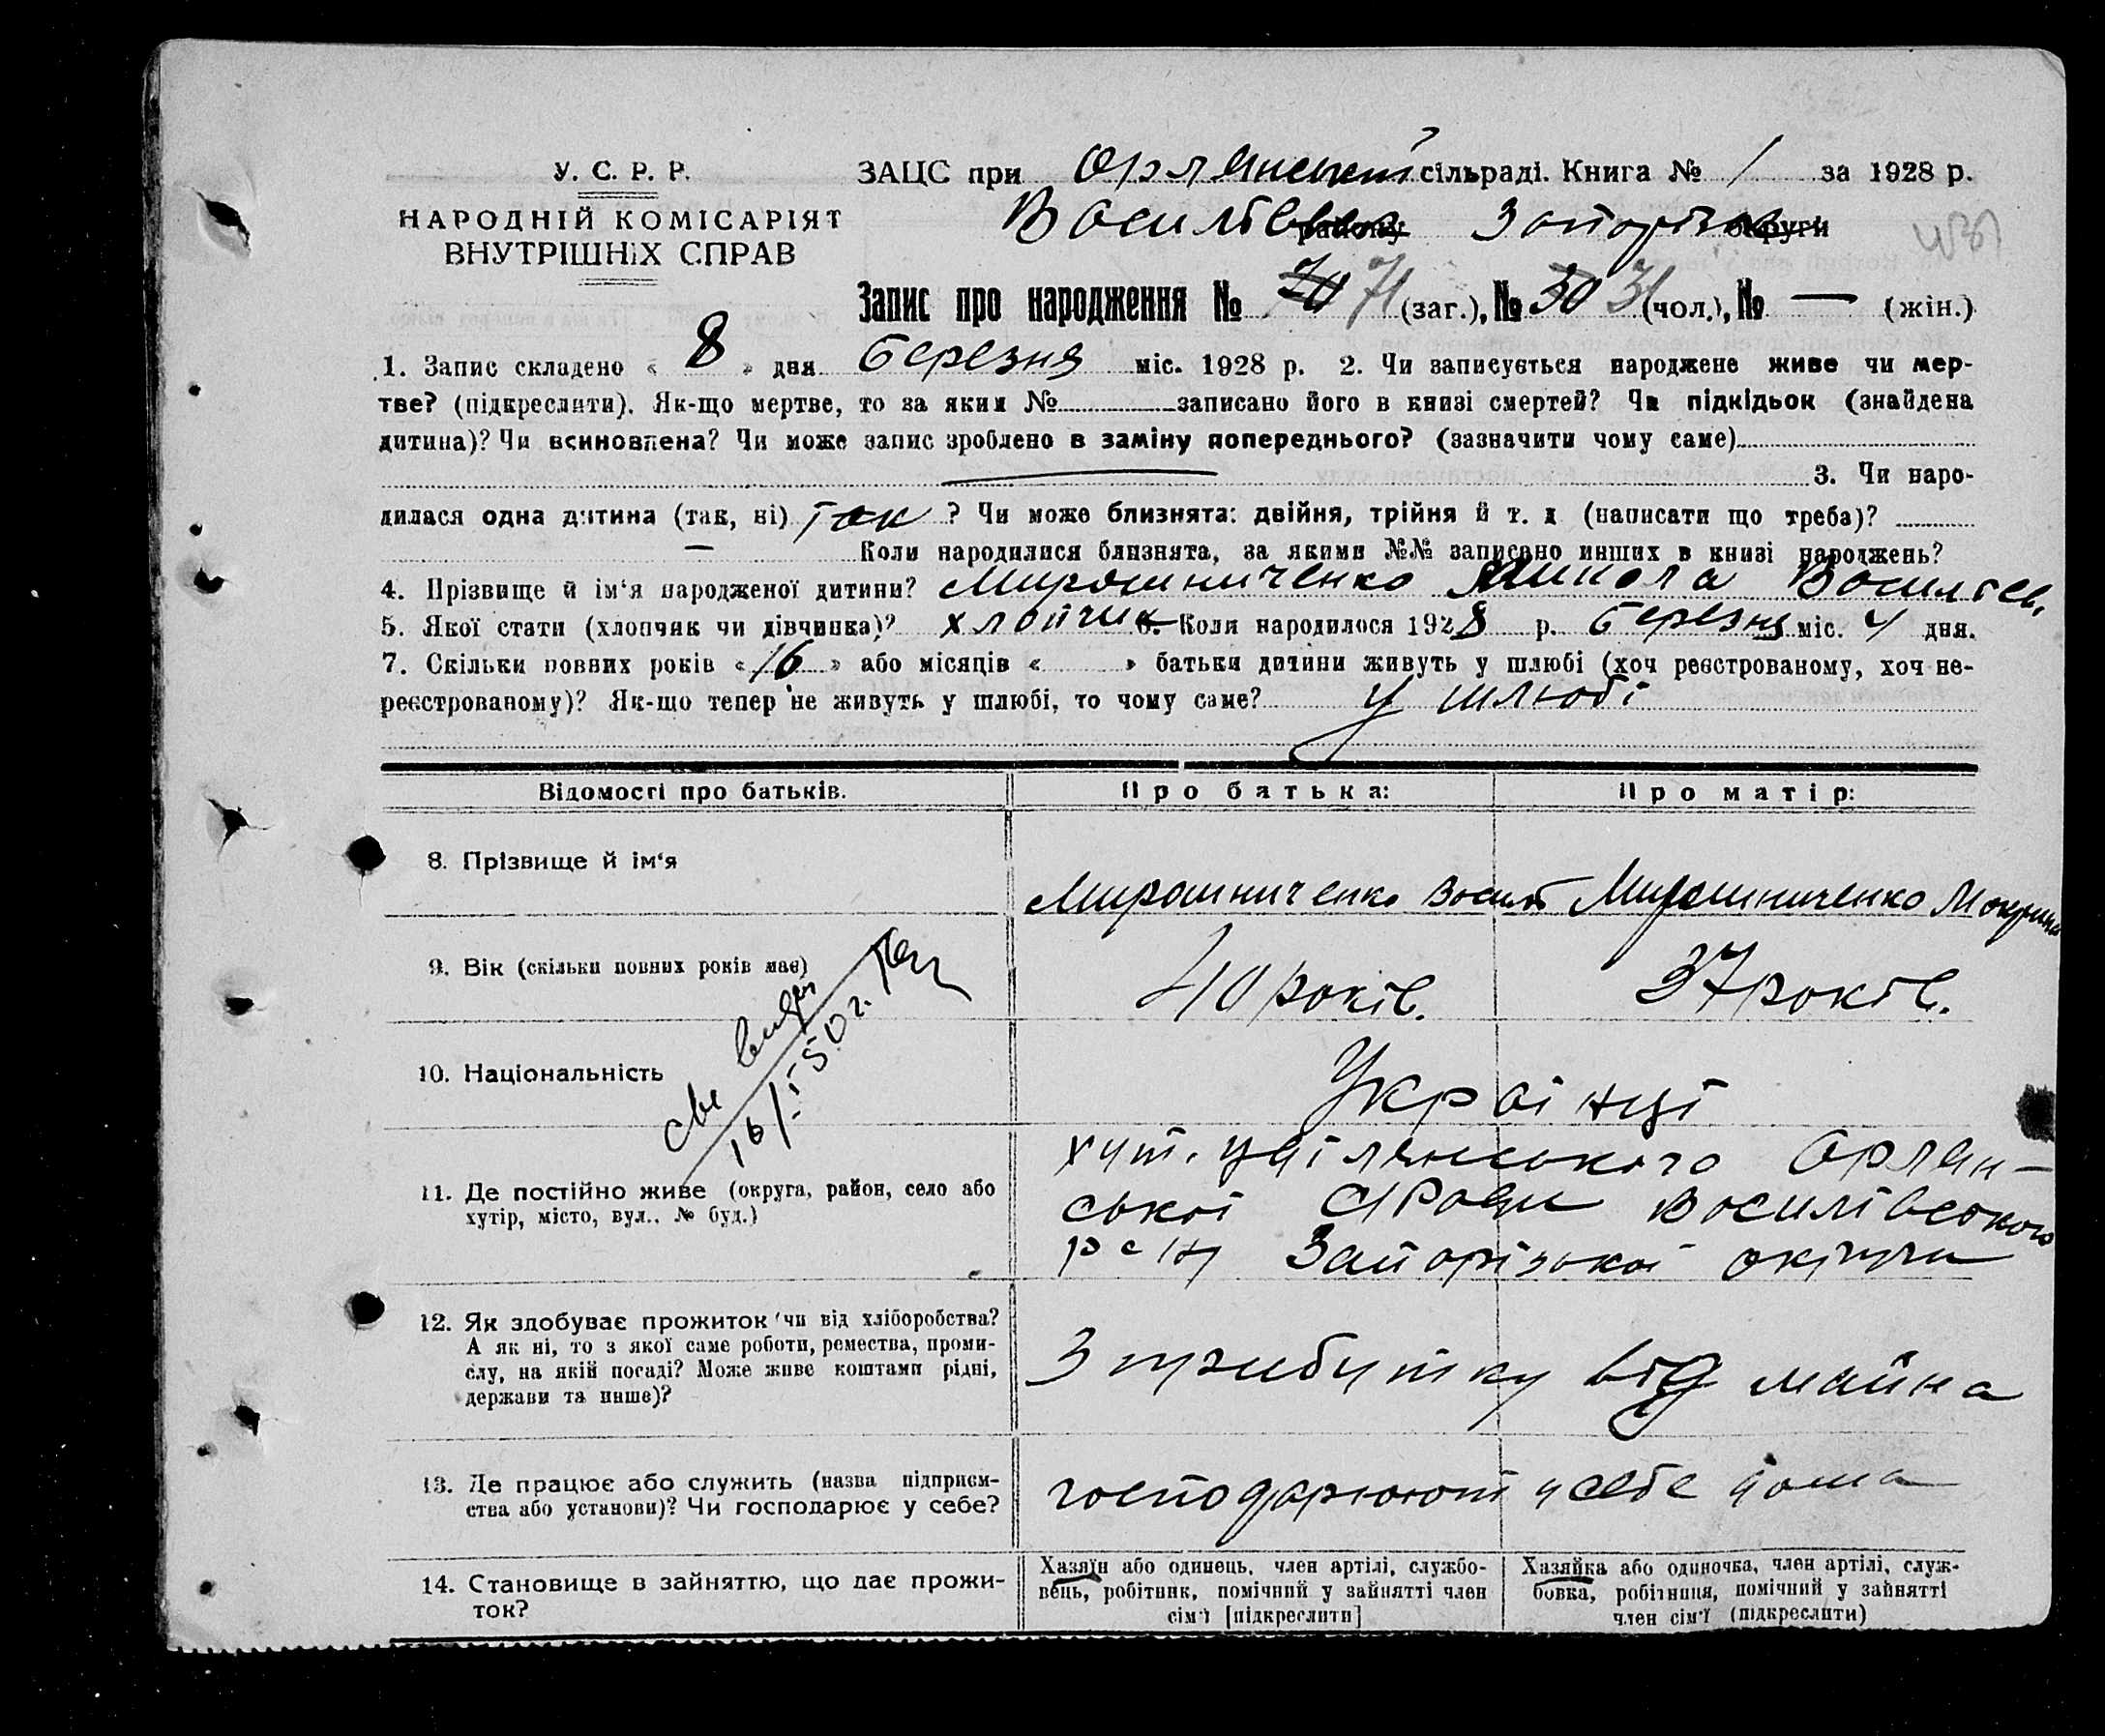 У. С. Р. Р.
НАРОДНІЙ КОМІСАРІЯТ
ВНУТРІШНІХ СПРАВ
ЗАЦС при Орлянській сільраді. Книга № 1 за 1928 р.
Василівськ району Запорізьк округи
Запис про народження № 70 71 (заг.), № 30 31 (чол.), № — (жін.)
1. Запис складено « 8 » дня березня міс. 1928 р. 2. Чи записується народжене живе чи мер-
тве? (підкреслити). Як-що мертве, то за яким № записано його в книзі смертей? Чи підкідьок (знайдена
дитина)? Чи всиновлена? Чи може запис зроблено в заміну попереднього? (зазначити чому саме)
3. Чи наро-
дилася одна дитина (так, ні) так ? Чи може близнята: двійня, трійня й т. д (написати що треба)?
— Коли народилися близнята, за якими №№ записано инших в книзі народжень?
4. Прізвище й ім‘я народженої дитини? Мирошниченко Микола Васильев.
5. Якої стати (хлопчик чи дівчинка)? хлопчик 6. Коли народилося 1928 р. березня міс. 4 дня.
7. Скільки повних років « 16 » або місяців « » батьки дитини живуть у шлюбі (хоч реєстрованому, хоч не-
реєстрованому)? Як-що тепер не живуть у шлюбі, то чому саме? у шлюбі
Відомості про батьків. Про батька: Про матір:
8. Прізвище й ім‘я Мирошниченко Василь Мирошниченко Мокрина
9. Вік (скільки повних років має) 40 років. 37 років.
10. Національність Українці
11. Де постійно живе (округа, район, село або
хутір, місто, вул.. № буд.)
хут. Орлян-
ської с/Ради Василівського
р-ну Запорізької округи
12. Як здобуває прожиток чи від хліборобства?
А як ні, то з якої саме роботи, ремества, проми-
слу, на якій посаді? Може живе коштами рідні,
держави та инше)?
З прибутку від майна
13. Де працює або служить (назва підприєм-
ства або установи)? Чи господарює у себе?
господарюють у себе дома
14. Становище в зайняттю, що дає прожи-
ток?
Хазяїн або одинець, член артілі, службо-
вець, робітник, помічний у зайнятті член
сім‘ї [підкреслити]
Хазяйка або одиночка, член артілі, служ-
бовка, робітниця, помічний у зайнятті
член сім‘ї (підкреслити)
16/I 50 г.